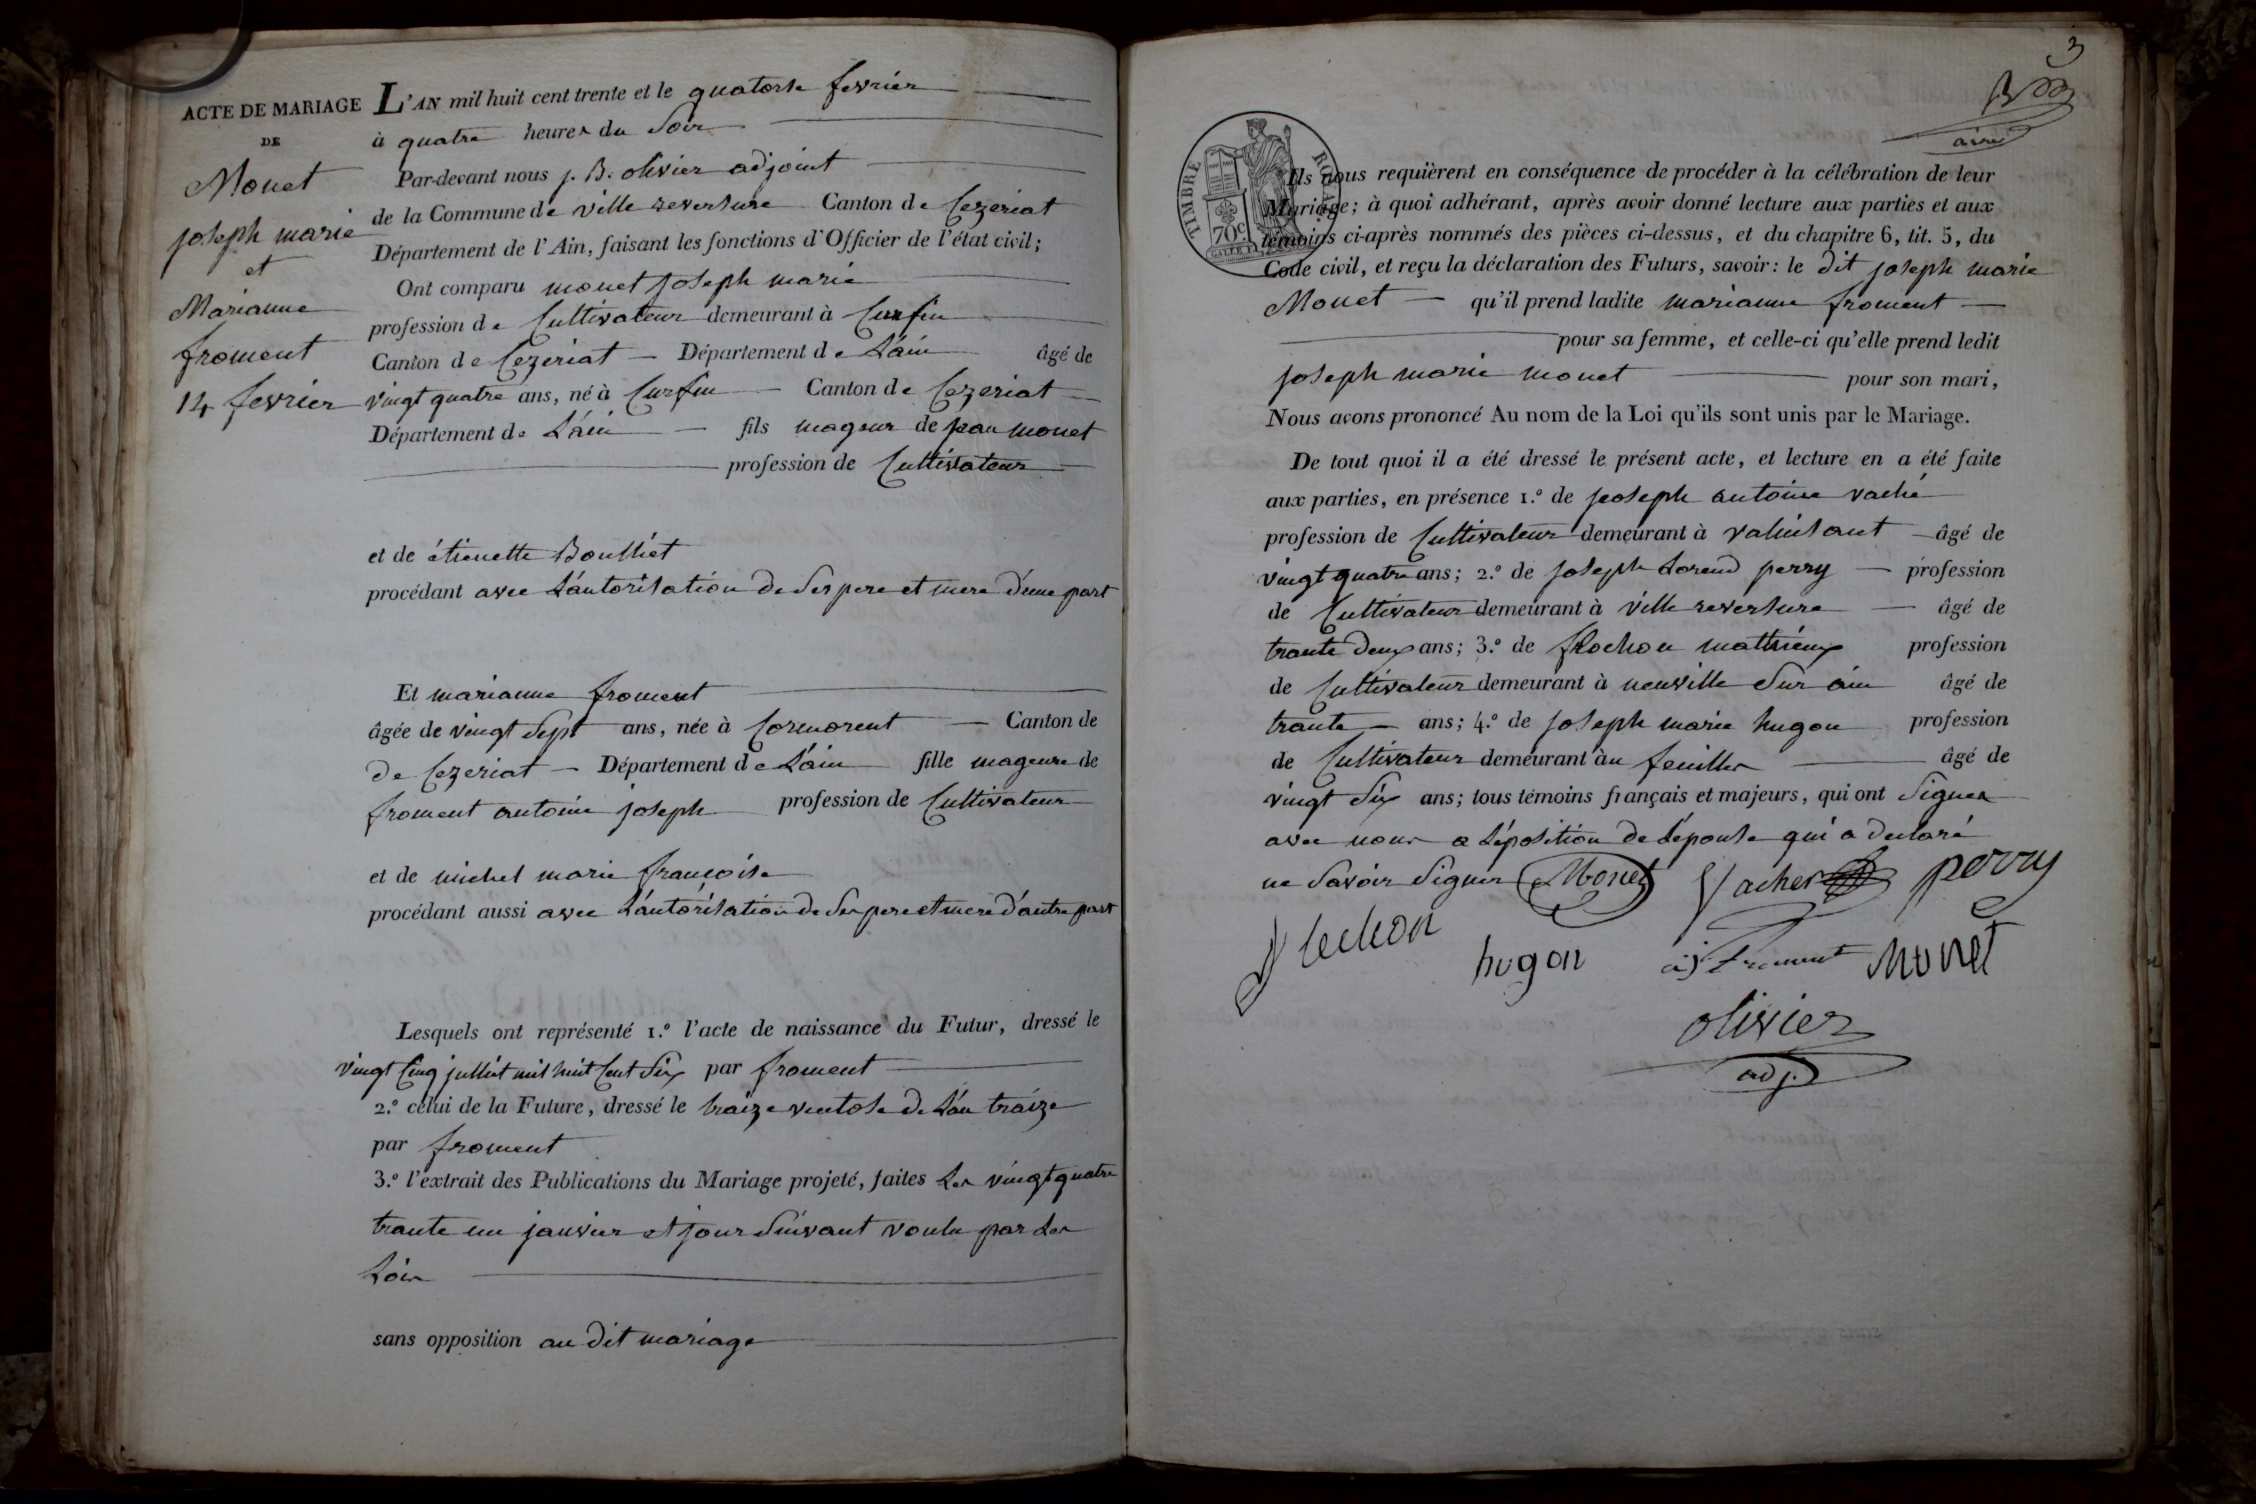 ACTE DE MARIAGE
DE
Monet
joseph marie
et
Marianne
froment
14 fevrier
L'AN mil huit cent trente et le quatorse fevrier
à quatre heures du Soir
Par-devant nous j. B. olivier adjoint
de la Commune de ville reversure Canton de Cezeriat
Département de l'Ain, faisant les fonctions d'Officier de l'état civil;
Ont comparu monet joseph marie
profession de Cultivateur demeurant à Curfin
Canton de Cezeriat Département de L'ain âgé de
vingt quatre ans, né à Curfin Canton de Cezeriat
Département de L'ain fils mageur de jean monet
profession de Cultivateur
et de étienette Boulliet
procédant avec L'autorisation de Ses pere et mere d'une part
Et marianne froment
âgée de vingt Sept ans, née à Cormorent Canton de
de Cezeriat Département de L'ain fille mageure de
froment antoine joseph profession de Cultivateur
et de michel marie francoise
procédant aussi avec L'autorisation de Ses pere et mere d'autre part
Lesquels ont représenté 1.º l'acte de naissance du Futur, dressé le
vingt Cinq julliet mil huit Cent Six par froment
2.º celui de la Future, dressé le traize ventose de L'an traize
par froment
3.º l'extrait des Publications du Mariage projeté, faites Les vingt quatre
trante un janvier et jour Suivant voulu par Les
Lois
sans opposition au dit mariage
3
TIMBRE ROYAL
70c
Ils nous requièrent en conséquence de procéder à la célébration de leur
Mariage; à quoi adhérant, après avoir donné lecture aux parties et aux
témoins ci-après nommés des pièces ci-dessus, et du chapitre 6, tit. 5, du
Code civil, et reçu la déclaration des Futurs, savoir: le dit joseph marie
Monet qu'il prend ladite marianne froment
pour sa femme, et celle-ci qu'elle prend ledit
joseph marie monet pour son mari,
Nous avons prononcé Au nom de la Loi qu'ils sont unis par le Mariage.
De tout quoi il a été dressé le présent acte, et lecture en a été faite
aux parties, en présence 1.º de joseph antoine vaché
profession de Cultivateur demeurant à âgé de
vingt quatre ans; 2.º de joseph Lorend perry profession
de Cultivateur demeurant à ville reversure âgé de
trante deux ans; 3.º de flochon mathieux profession
de Cultivateur demeurant à neuville Sur ain âgé de
trante ans; 4.º de joseph marie hugon profession
de Cultivateur demeurant àu feuilles âgé de
vingt Six ans; tous témoins français et majeurs, qui ont Signer
avec nous a L'éposition de L'épouse qui a declaré
ne Savoir Signer Monet Vacher perry
flechon hugon aj Froment Monet
olivier
adj.